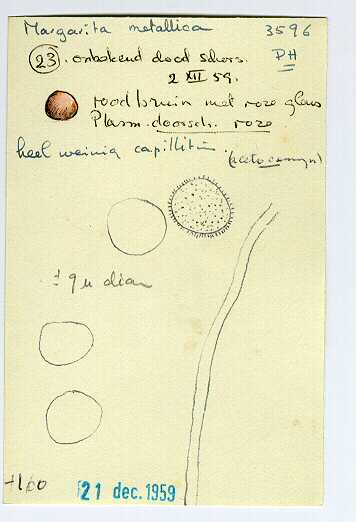 Margarita metallica 3596
(23). onbekend dood schors. PH
2 XII 59.
roodbruin met roze glans
Plasm. doorsch. roze
heel weinig capillitium
(acetocarmijn)
± 9 µ diam
21 dec. 1959